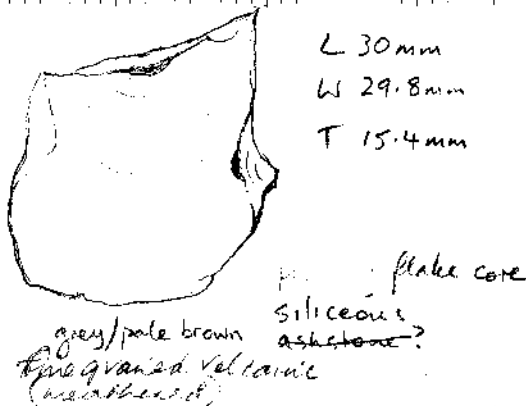 L 30mm
W 29.8mm
T 15.4mm
flake core
siliceous
ashstone?
grey/pale brown
fine grained volcanic
(weathered)